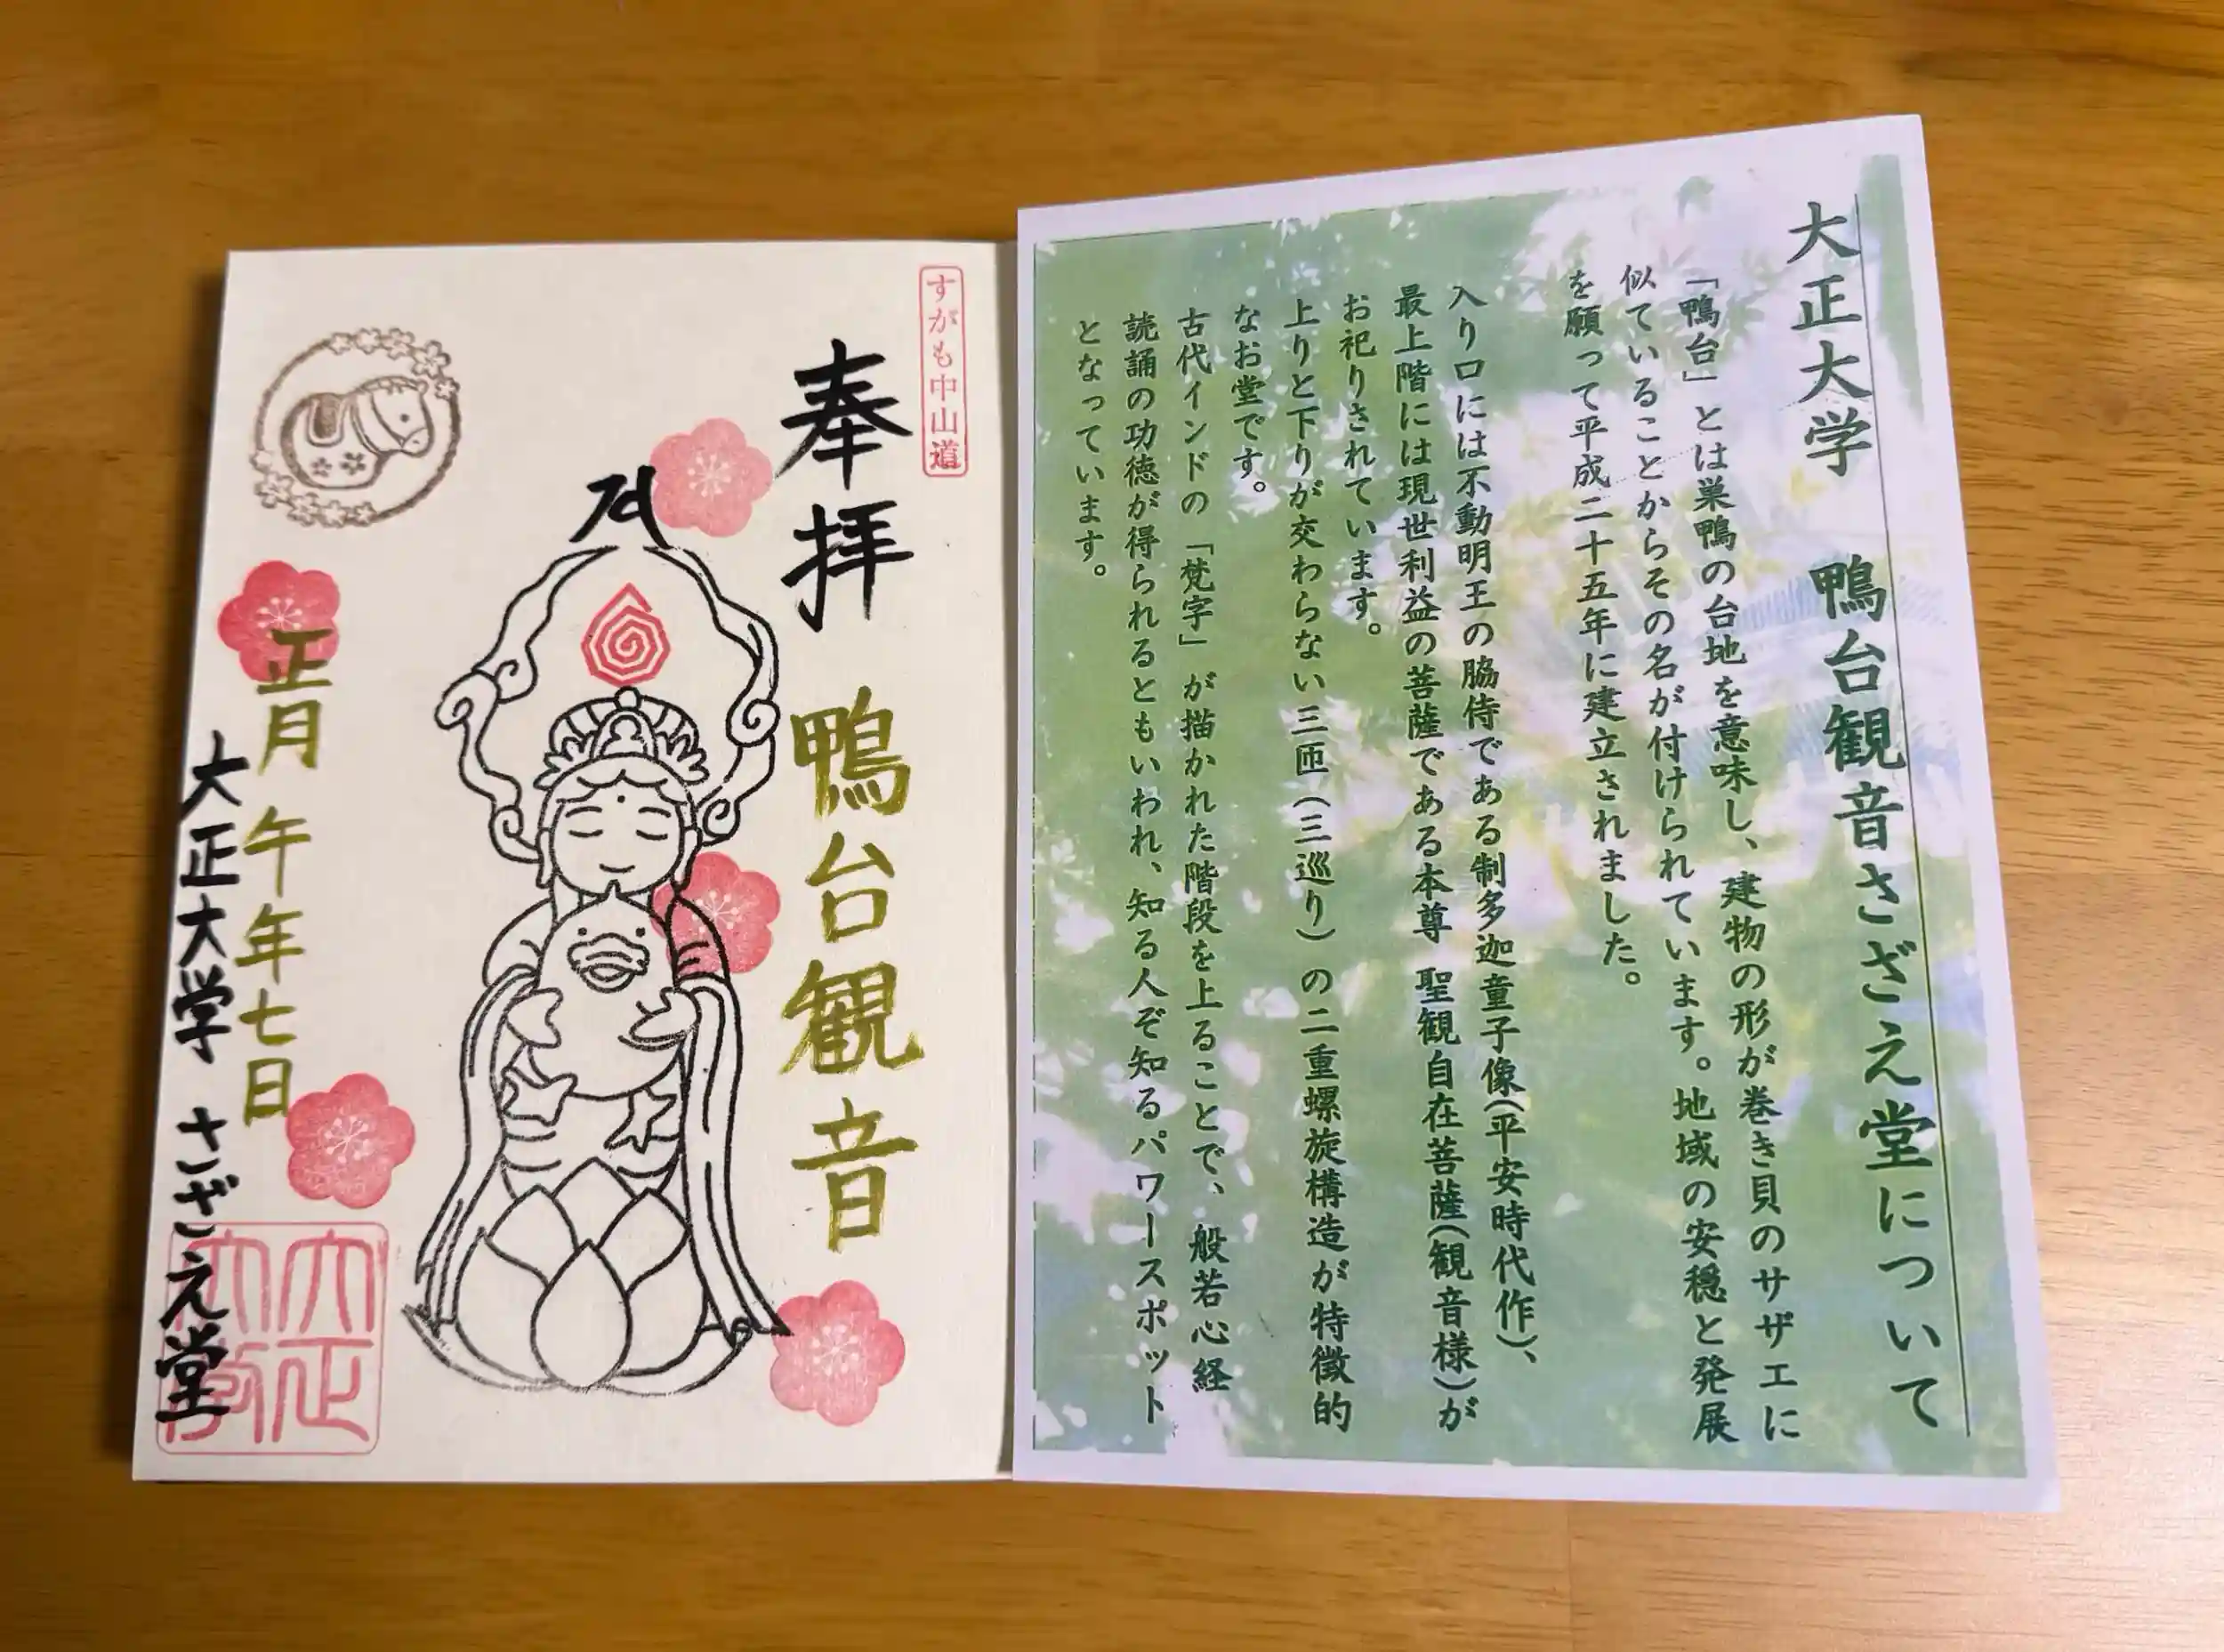 すがも中山道
奉拝 鴨台観音
正月 午年七日
大正大学 さざえ堂
大正
大學
大正大学 鴨台観音さざえ堂について
「鴨台」とは巣鴨の台地を意味し、建物の形が巻き貝のサザエに
似ていることからその名が付けられています。地域の安穏と発展
を願って平成二十五年に建立されました。
入り口には不動明王の脇侍である制多迦童子像(平安時代作)、
最上階には現世利益の菩薩である本尊 聖観自在菩薩(観音様)が
お祀りされています。
上りと下りが交わらない三匝(三巡り)の二重螺旋構造が特徴的
なお堂です。
古代インドの「梵字」が描かれた階段を上ることで、般若心経
読誦の功徳が得られるともいわれ、知る人ぞ知るパワースポット
となっています。